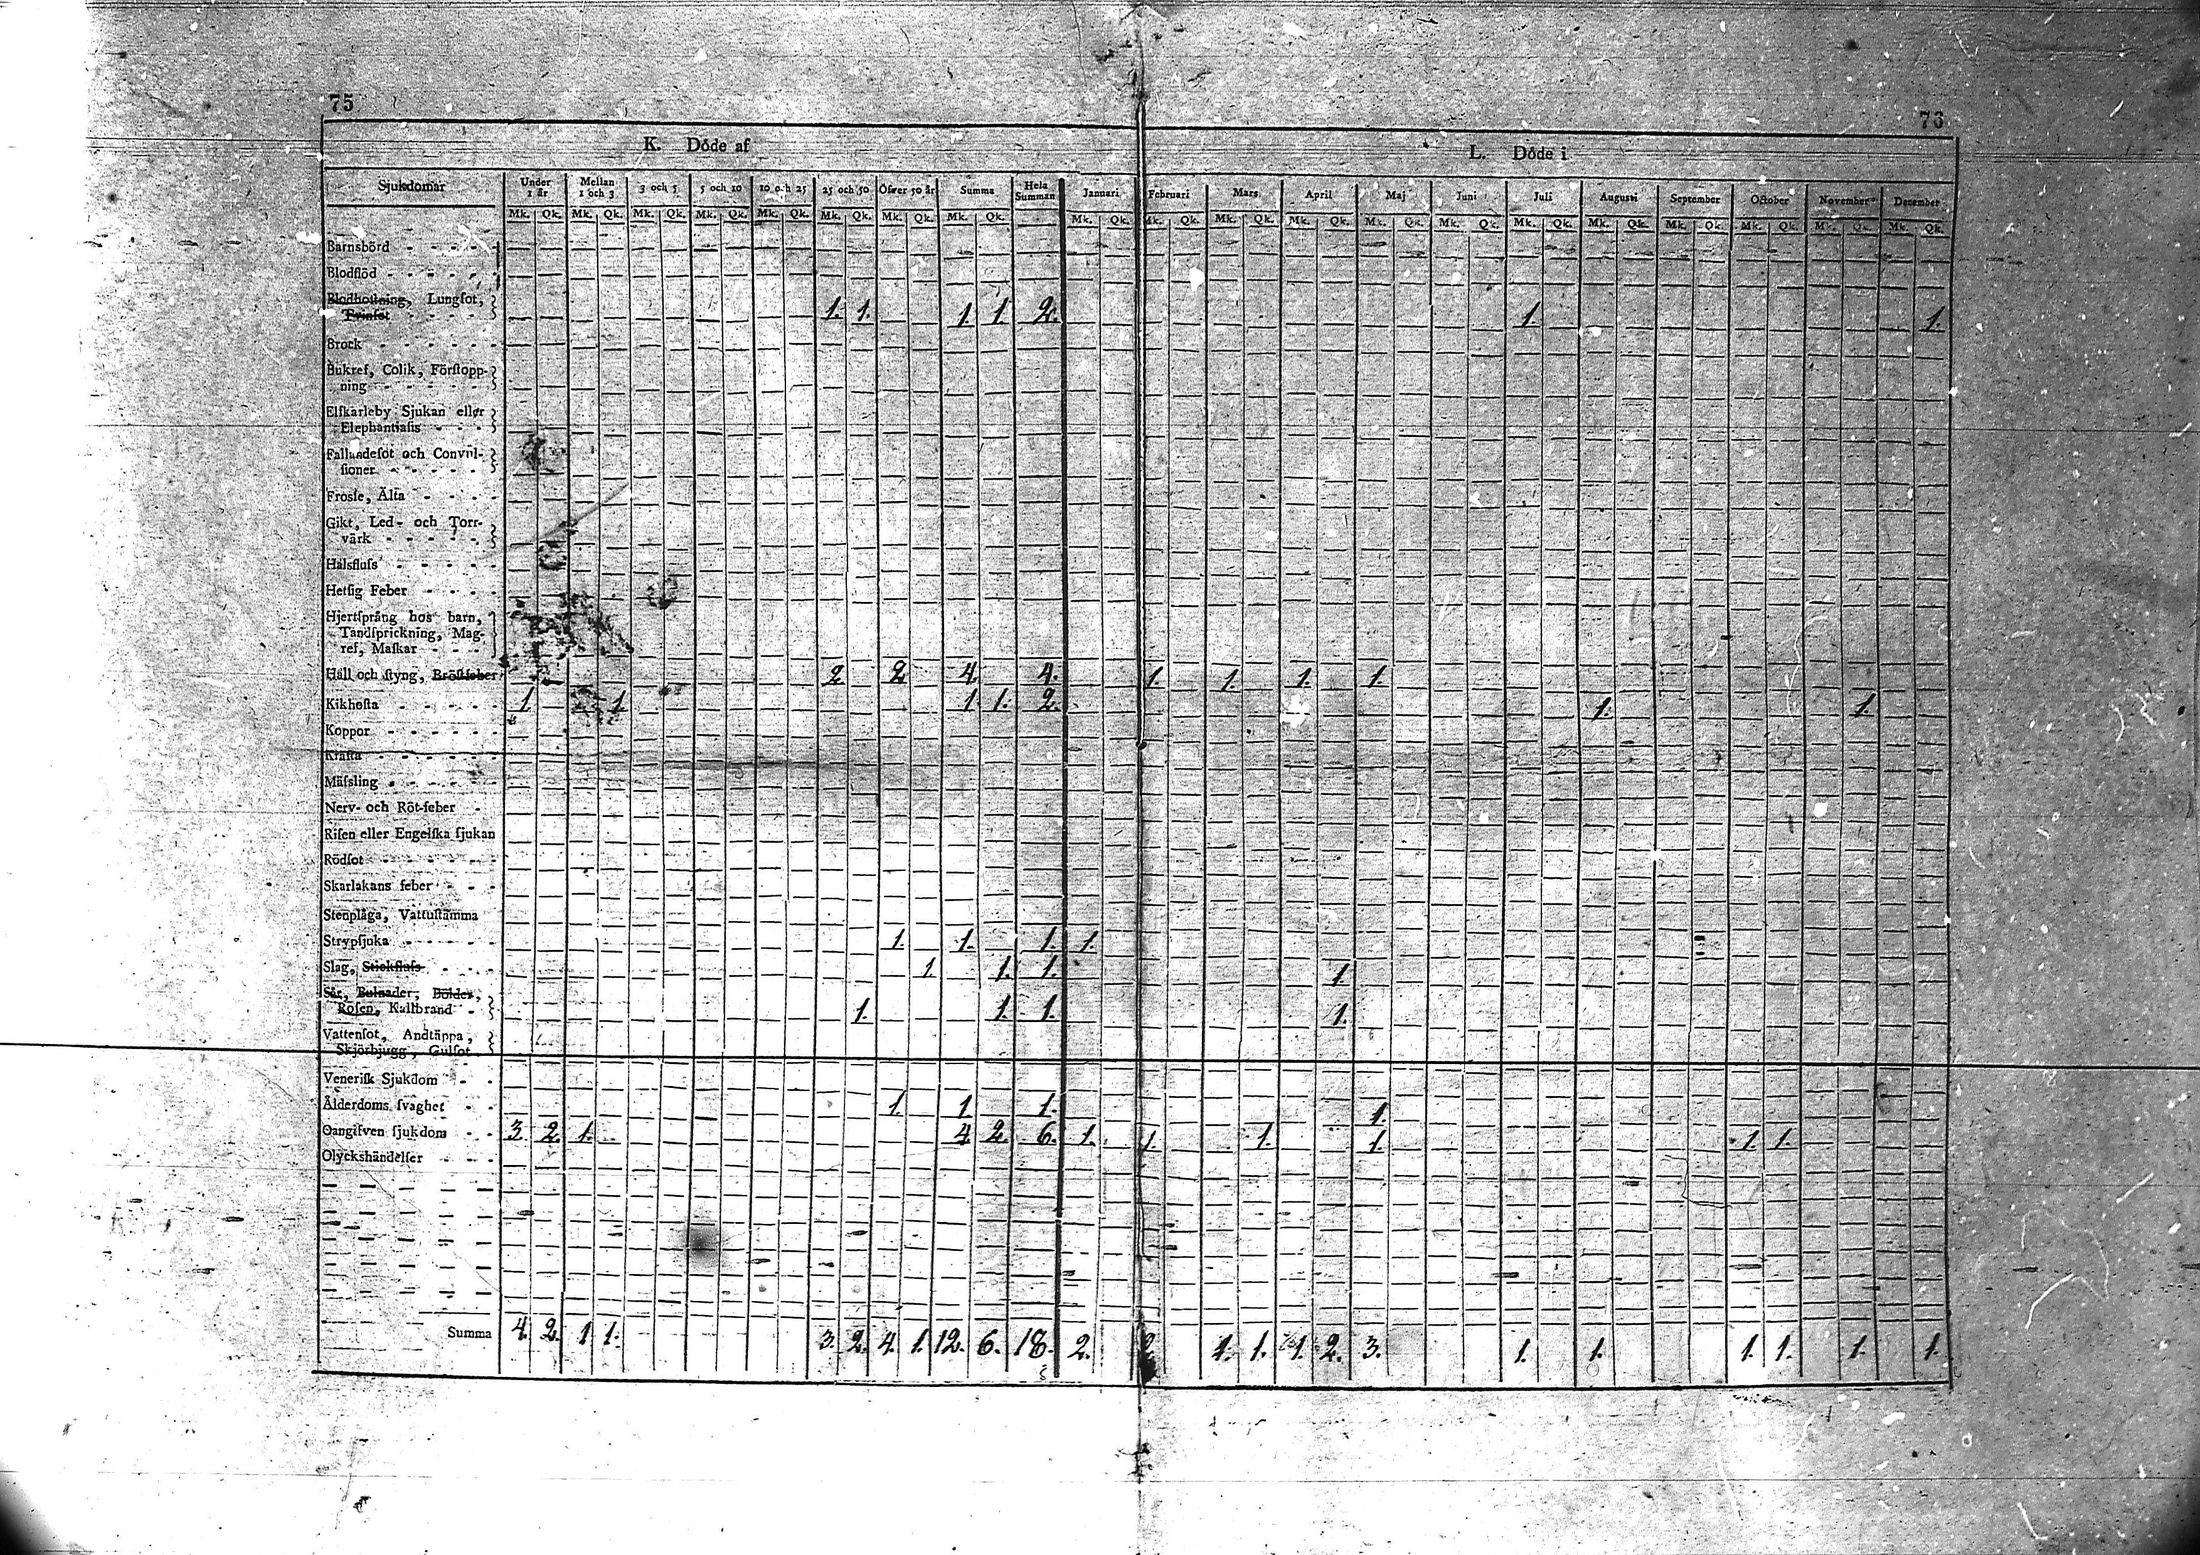 75
76
K. Döde af
L. Döde i
Sjukdomar Under 1 år Mellan 1 och 3 3 och 5 5 och 10 10 och 25 25 och 50 Öfver 50 år Summa Hela Summan Januari Februari Mars April Maj Juni Juli Augusti September October November December
Mk. Qk. Mk. Qk. Mk. Qk. Mk. Qk. Mk. Qk. Mk. Qk. Mk. Qk. Mk. Qk. Mk. Qk. Mk. Qk. Mk. Qk. Mk. Qk. Mk. Qk. Mk. Qk. Mk. Qk. Mk. Qk. Mk. Qk. Mk. Qk. Mk. Qk. Mk. Qk.
Barnsbörd - - - - -
Blodflöd - - - - - -
Blodhostning, Lungſot,
Tvinſot - - - - 1. 1. 1. 1. 2. 1. 1.
Brock - - - - - -
Bukref, Colik, Förſtopp-
ning - - - - - -
Elſkarleby Sjukan eller
Elephantiaſis - - - -
Fallandeſot och Convul-
ſioner - - - - -
Frosſe, Älta - - - -
Gikt, Led- och Torr-
värk - - - - -
Halsfluſs - - - - -
Hetſig Feber - - - -
Hjertſprång hos barn,
Tandſprickning, Mag-
ref, Maſkar - - -
Håll och ſtyng, Bröſtfeber 2 2 4. 4. 1. 1. 1. 1.
Kikhoſta - - - - - 1. 1. 1. 1. 2. 1. 1.
Koppor - - - - - -
Kräfta - - - - - -
Mäſsling - - - - - -
Nerv- och Röt-feber -
Riſen eller Engelſka ſjukan
Rödſot - - - - - -
Skarlakans feber - - -
Stenplåga, Vattuſtämma
Strypſjuka - - - - - 1. 1. 1. 1.
Slag, Stickfluſs - - - 1. 1. 1. 1.
Sår, Bulnader, Bölder,
Roſen, Kallbrand - 1. 1. 1. 1.
Vattenſot, Andtäppa,
Skjörbjugg, Gulſot
Veneriſk Sjukdom - -
Ålderdoms ſvaghet - - 1. 1 1. 1.
Oangifven ſjukdom - - 3 2. 1. 4 2. 6. 1. 1. 1. 1. 1. 1.
Olyckshändelſer - - -
Summa 4. 2. 1 1. 3. 2. 4. 1. 12. 6. 18. 2. 2. 1. 1. 1. 2. 3. 1. 1. 1. 1. 1. 1.